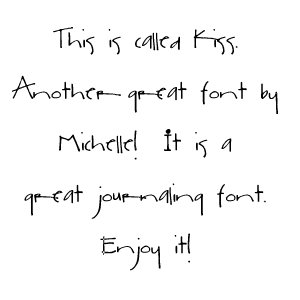 This is called Kiss.
Another great font by
Michelle! It is a
great journaling font.
Enjoy it!